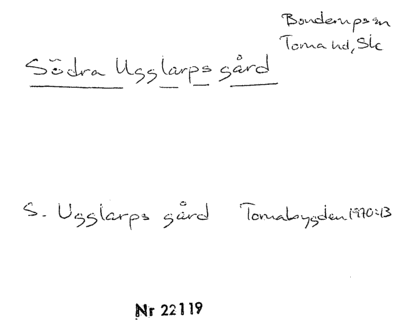 Bonderups sn
Torna hd, Sk
Södra Ugglarps gård
S. Ugglarps gård Tornabygden 1970:13
Nr 22119